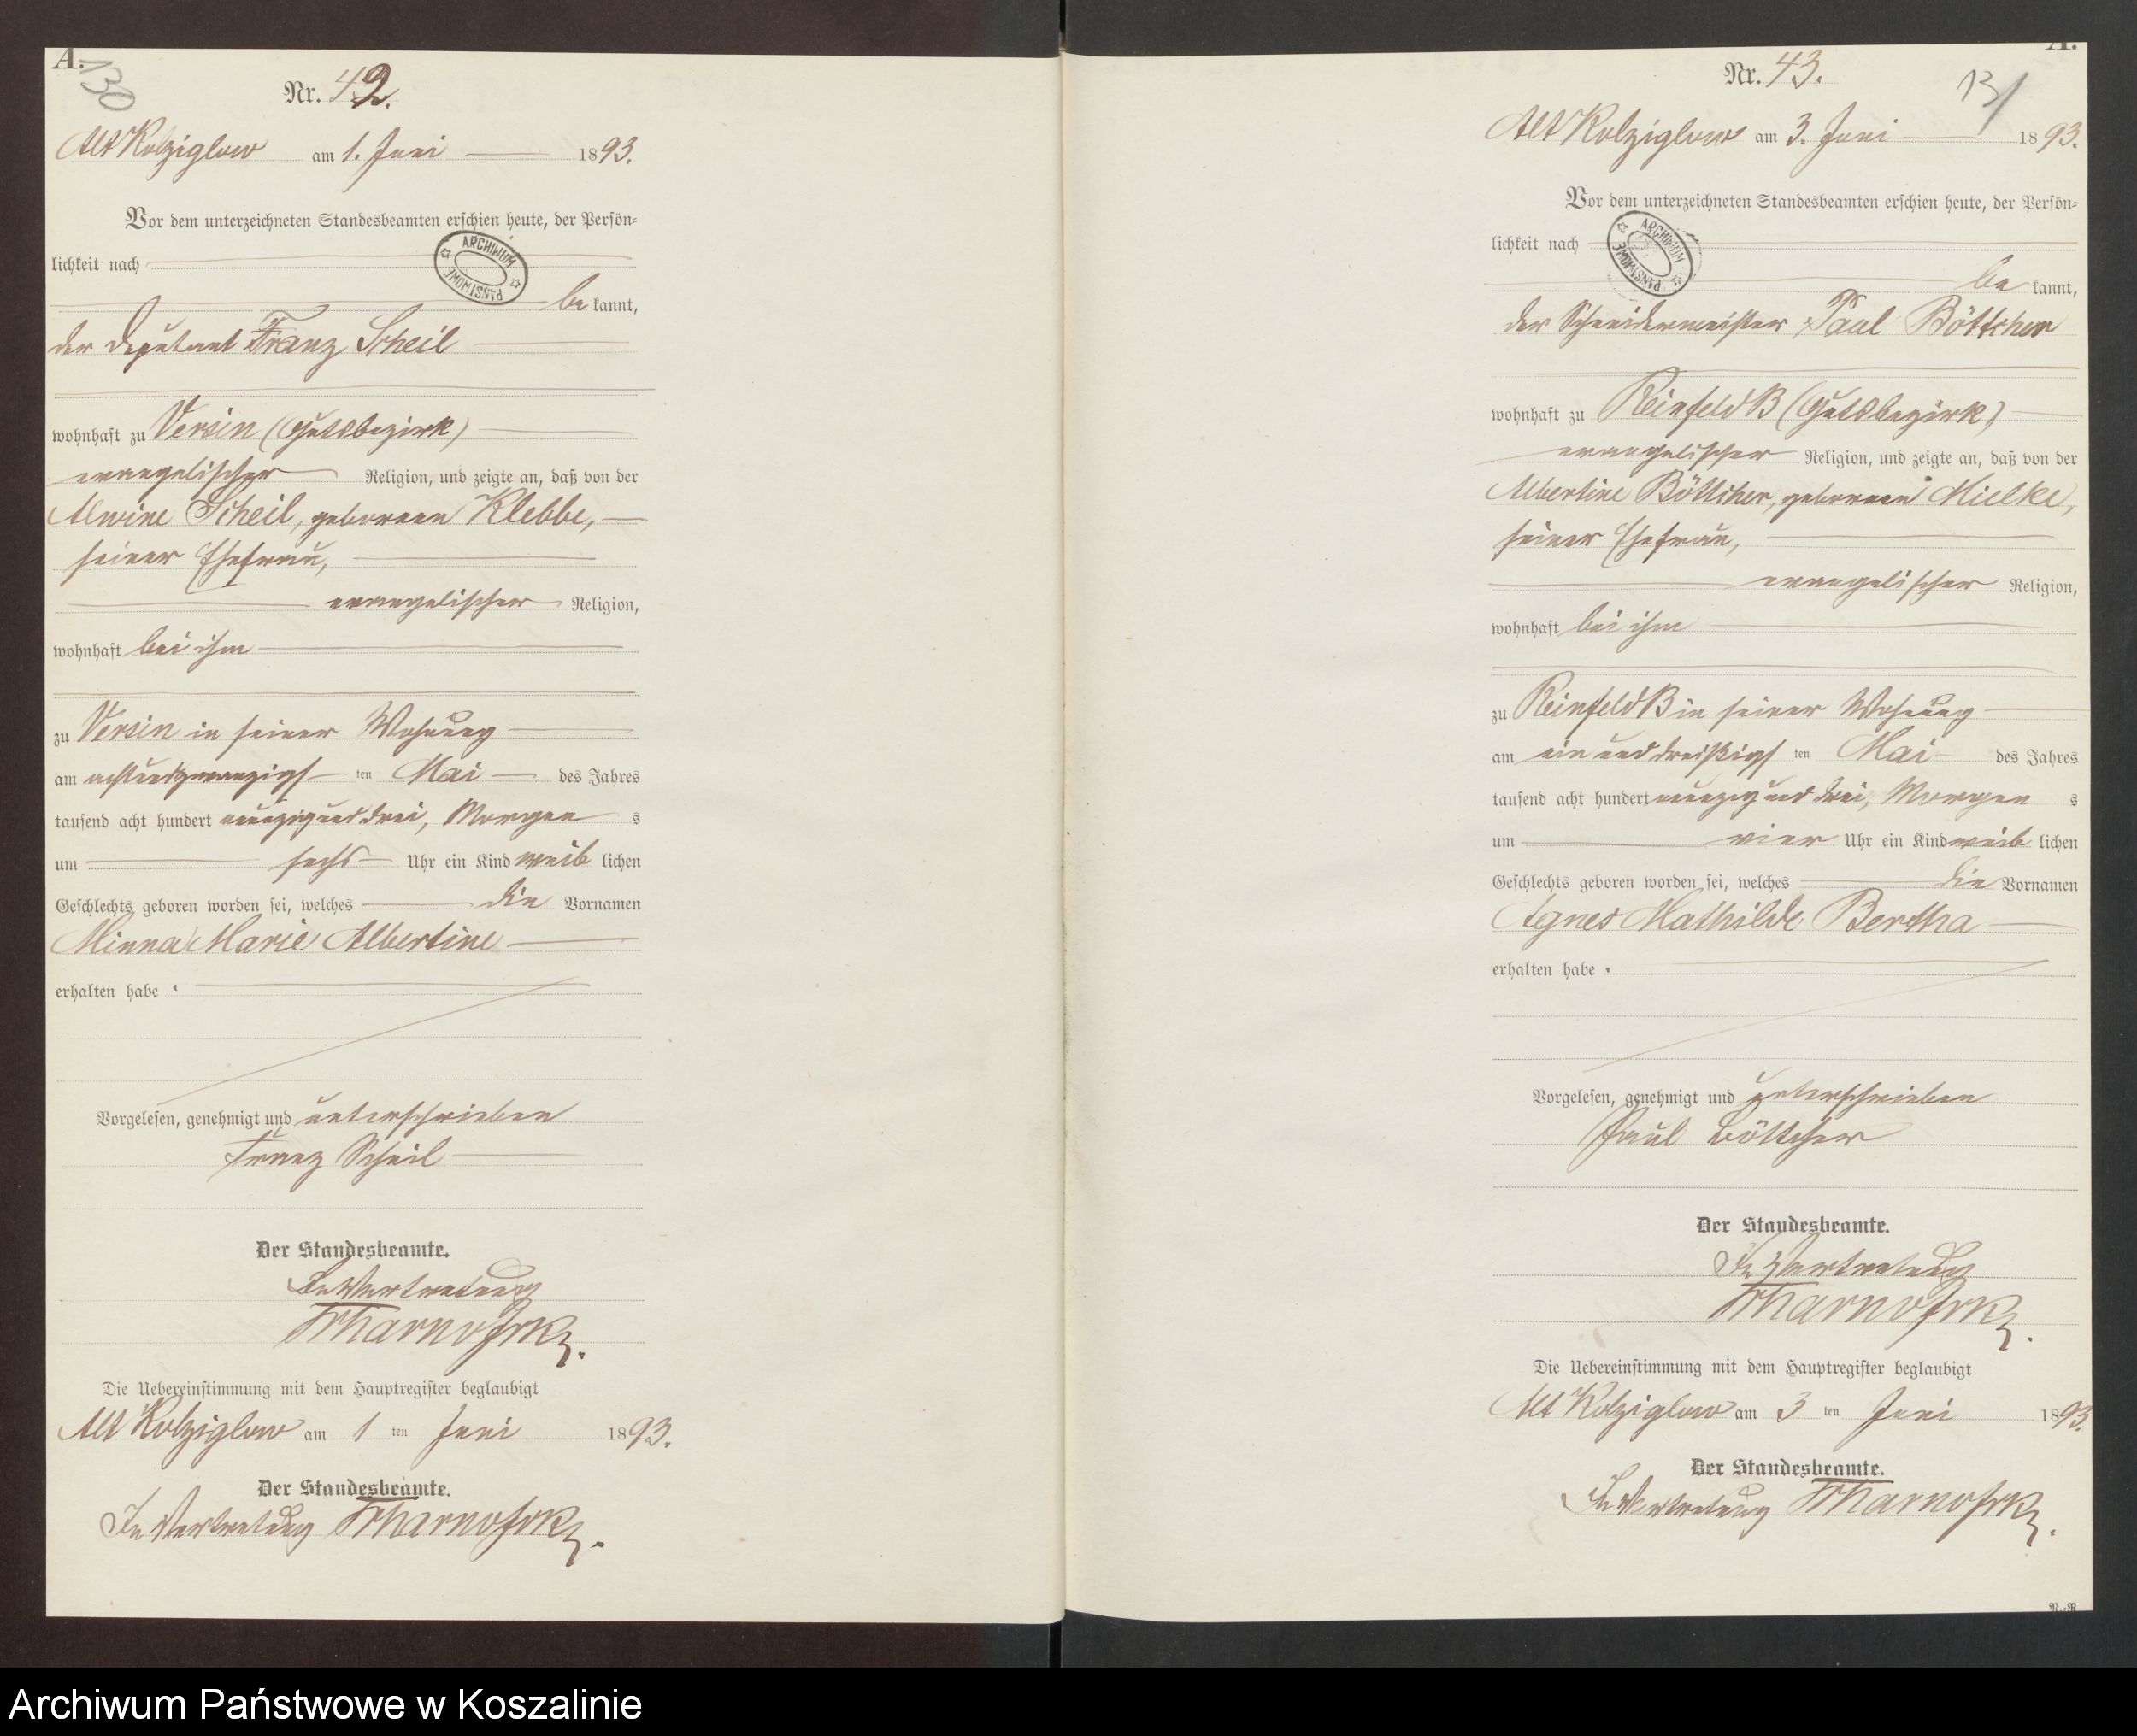 A.
130
Nr. 42.
Alt Kolziglow am 1. Juni 1893.
Vor dem unterzeichneten Standesbeamten erschien heute, der Persön-
lichkeit nach
ARCHIWUM PAŃSTWOWE
be kannt,
der Deputant Franz Scheil
wohnhaft zu Versin (Gutsbezirk)
evangelischer Religion, und zeigte an, daß von der
Alwine Scheil, geborenen Klebbe,
seiner Ehefrau,
evangelischer Religion,
wohnhaft bei ihm
zu Versin in seiner Wohnung
am achtundzwanzigs ten Mai des Jahres
tausend acht hundert neunzig und drei, Morgen s
um sechs Uhr ein Kind weib lichen
Geschlechts geboren worden sei, welches die Vornamen
Minna Marie Albertine
erhalten habe.
Vorgelesen, genehmigt und unterschrieben
Franz Scheil
Der Standesbeamte.
In Vertretung
Die Uebereinstimmung mit dem Hauptregister beglaubigt
Alt Kolziglow am 1 ten Juni 1893.
Der Standesbeamte.
In Vertretung
A.
Nr. 43.
131
Alt Kolziglow am 3. Juni 1893.
Vor dem unterzeichneten Standesbeamten erschien heute, der Persön-
lichkeit nach
ARCHIWUM PAŃSTWOWE
be kannt,
der Schneidermeister Paul Böttcher
wohnhaft zu Reinfeld B (Gutsbezirk)
evangelischer Religion, und zeigte an, daß von der
Albertine Böttcher, geborenen Mielke,
seiner Ehefrau,
evangelischer Religion,
wohnhaft bei ihm
zu Reinfeld B in seiner Wohnung
am ein und dreißigs ten Mai des Jahres
tausend acht hundert neunzig und drei, Morgen s
um vier Uhr ein Kind weib lichen
Geschlechts geboren worden sei, welches die Vornamen
Agnes Mathilde Bertha
erhalten habe.
Vorgelesen, genehmigt und unterschrieben
Paul Böttcher
Der Standesbeamte.
In Vertretung
Die Uebereinstimmung mit dem Hauptregister beglaubigt
Alt Kolziglow am 3 ten Juni 1893.
Der Standesbeamte.
In Vertretung
Archiwum Państwowe w Koszalinie